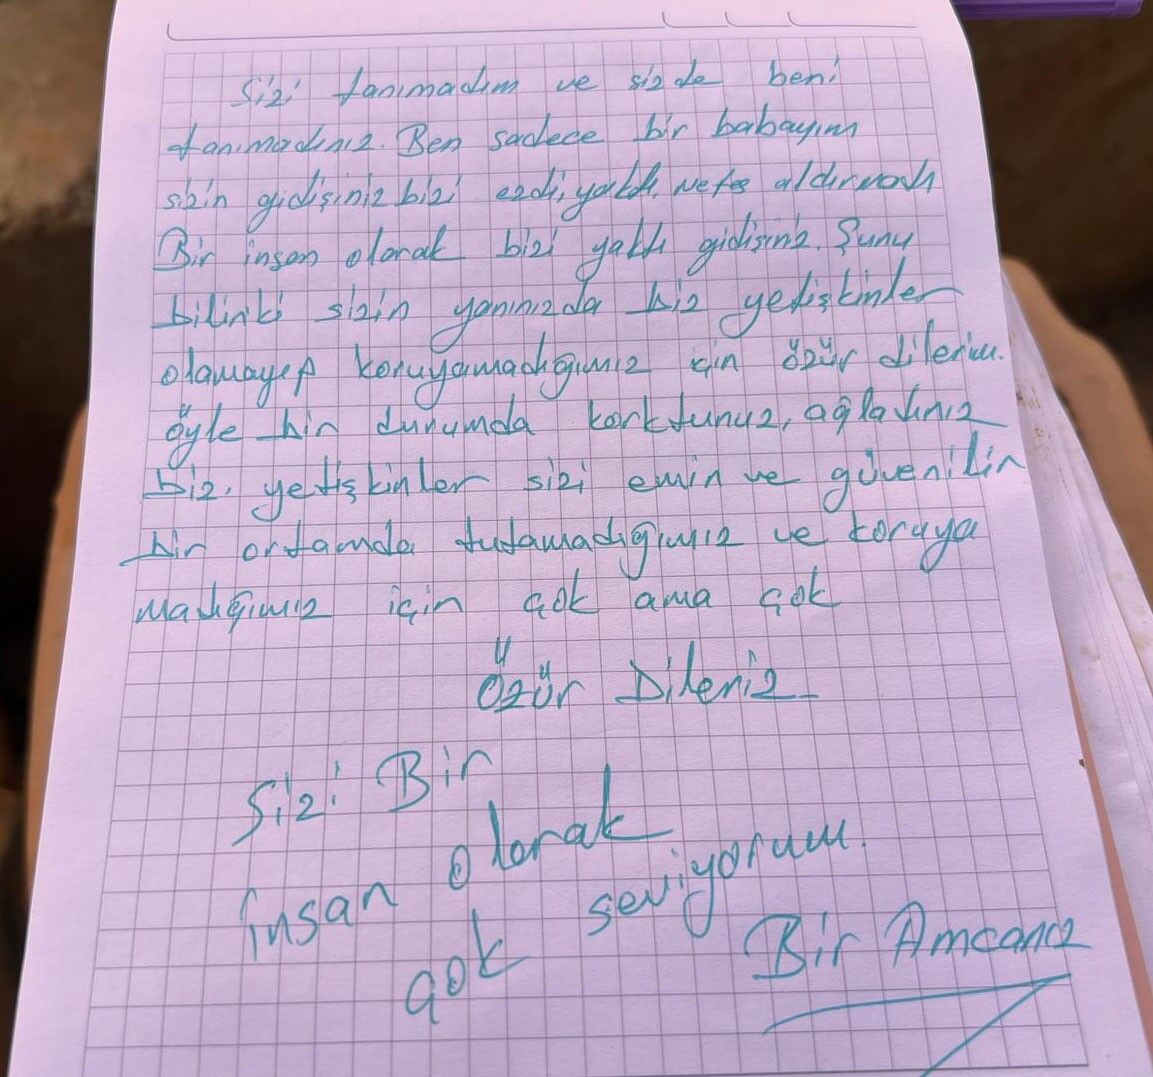 Sizi tanımadım ve sizde beni
tanımadınız. Ben sadece bir babayım
sizin gidişiniz bizi ezdi, yaktı, nefes aldırmadı
Bir insan olarak bizi yaktı gidişiniz. Şunu
bilinki sizin yanınızda biz yetişkinler
olamayıp koruyamadığımız için özür dilerim.
öyle bir durumda korktunuz, ağladınız
biz, yetişkinler sizi emin ve güvenilir
bir ortamda tutamadığımız ve koruya
madığımız için çok ama çok
Özür Dileriz
Sizi Bir
insan olarak
çok seviyorum.
Bir Amcanız